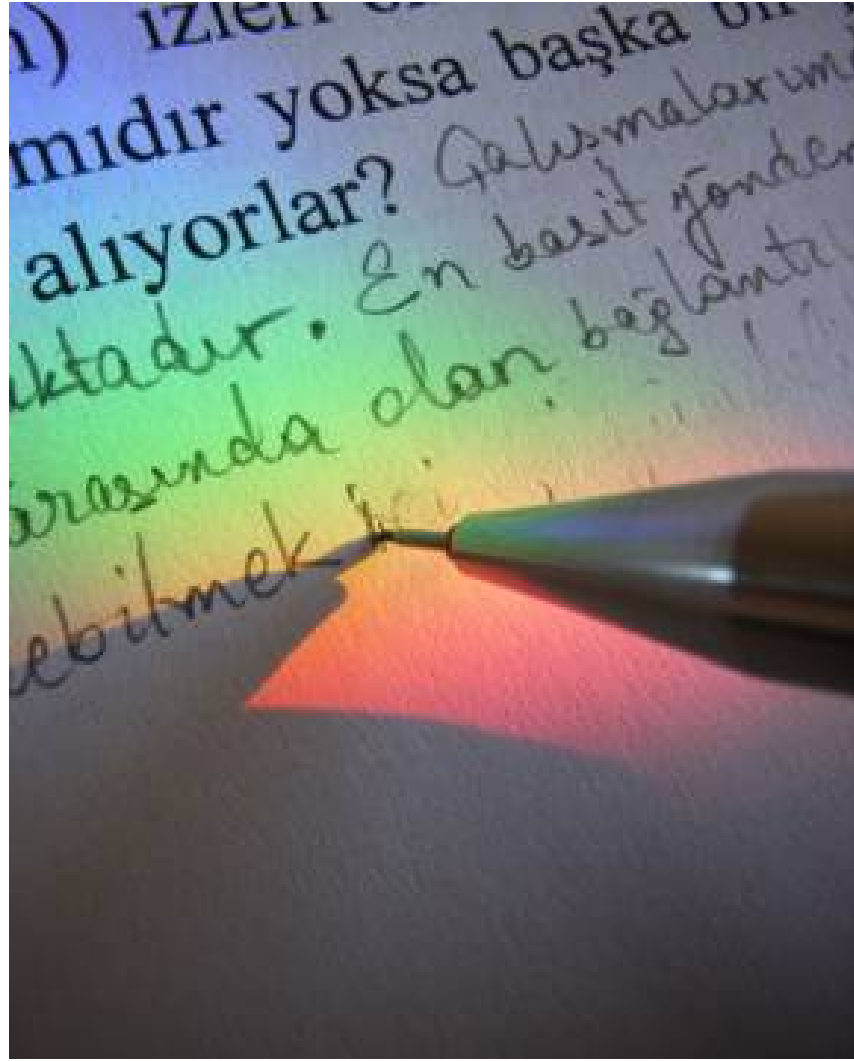 izleri
mıdır yoksa başka bir
alıyorlar? Çalışmalarım
aktadır. En basit yönden
arasında olan bağlantı
ebilmek içi